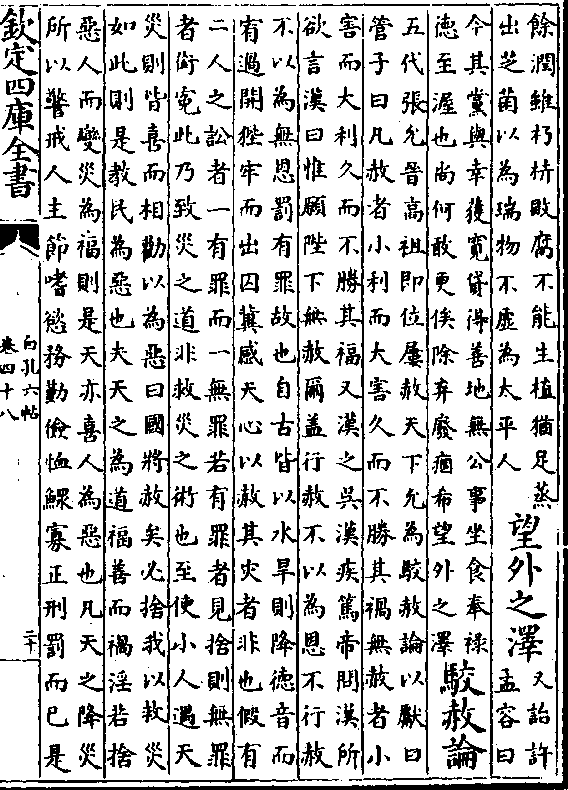 餘潤雖朽枿敗腐不能生植猶足蒸
出芝菌以為瑞物不虛為太平人
望外之澤
又詒許
孟容曰
今其黨與幸獲寬貸得善地無公事坐食奉祿
德至渥也尚何敢更俟除弃廢痼希望外之澤
駮赦論
五代張允晉高祖即位屢赦天下允為駮赦論以獻曰
管子曰凡赦者小利而大害久而不勝其禍無赦者小
害而大利久而不勝其福又漢之吳漢疾篤帝問漢所
欲言漢曰惟願陛下無赦爾盖行赦不以為恩不行赦
不以為無恩罰有罪故也自古皆以水旱則降德音而
有過開狴牢而出囚冀感天心以赦其灾者非也假有
二人之訟者一有罪而一無罪若有罪者見捨則無罪
者銜寃此乃致災之道非救災之術也至使小人遇天
災則皆喜而相勸以為惡曰國將赦矣必捨我以救災
如此則是教民為惡也夫天之為道福善而禍淫若捨
惡人而變災為福則是天亦喜人為惡也凡天之降災
所以警戒人主節嗜慾務勤儉恤鰥寡正刑罰而已是
欽定四庫全書
白孔六帖
卷四十八
二十